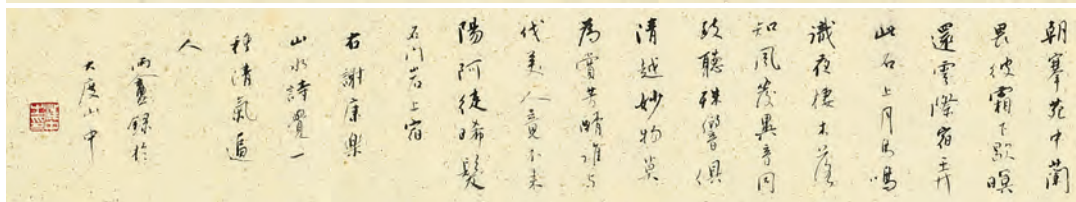 朝搴苑中蘭
畏彼霜下歇暝
還雲際宿弄
此石上月鳥鳴
識夜棲木落
知風發異音同
致聽殊響俱
清越妙物莫
為賞芳醑誰與
伐美人竟不来
陽阿徒晞髮
石门岩上宿
右謝康樂
山水詩覺一
種清氣逼
人
雨盦錄於
大度山中